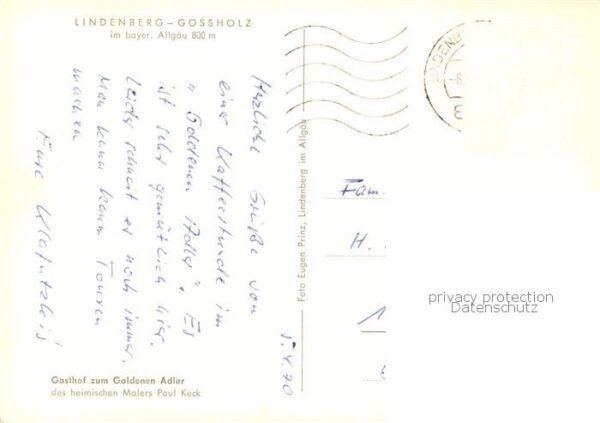 LINDENBERG – GOSSHOLZ
im bayer. Allgäu 800 m
Herzliche Grüße von
einer Kaffeestunde im
"Goldenen Adler". Es
ist sehr gemütlich hier.
Leider schneit es noch immer.
Man kann kaum Touren
machen
Eure
5.4.70
Gasthof zum Goldenen Adler
des heimischen Malers Paul Keck
Foto Eugen Prinz, Lindenberg im Allgäu
LINDENB
Fam.
H.
1
privacy protection
Datenschutz